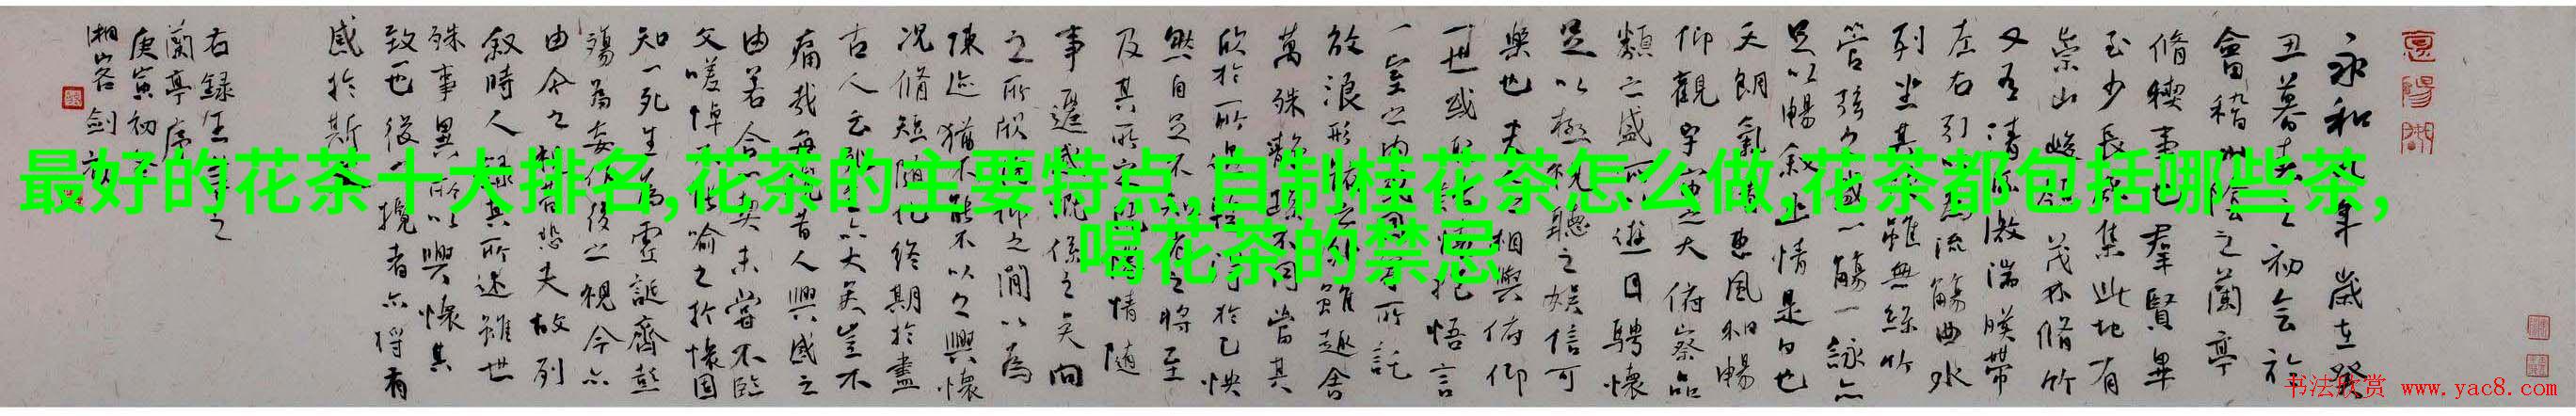 最好的花茶十大排名,花茶的主要特点,自制桂花茶怎么做,花茶都包括哪些茶,
喝花茶的禁忌
永和九年歲在癸
丑暮春之初会於
會稽山陰之蘭亭
脩禊事也羣賢畢
至少長咸集此地有
崇山峻領茂林脩竹
又有清流激湍暎帶
左右引以為流觴曲水
列坐其次雖無絲竹
管弦之盛一觴一詠亦
足以暢叙幽情是日也
天朗氣清惠風和暢
仰觀宇宙之大俯察品
類之盛所以遊目騁懷
足以極視聽之娛信可
樂也夫人之相與俯仰
一世或取諸懷抱悟言
一室之内或因寄所託
放浪形骸之外雖趣舍
萬殊靜躁不同當其
欣於所遇暫得於己快
然自足不知老之將至
及其所之既惓情隨
事遷感慨係之矣向
之所欣俛仰之間以為
陳迹猶不能不以之興懷
况脩短隨化終期於盡
古人云死生亦大矣豈不
痛哉每攬昔人興感之
由若合一契未嘗不臨
文嗟悼不能喻之於懷固
知一死生為虛誕齊彭
殤為妄作後之視今亦
由今之視昔悲夫故列
叙時人録其所述雖世
殊事異所以興懷其
致一也後之攬者亦將有
感於斯文
右録王羲之
蘭亭序
庚寅初
湘客劍
书法欣赏 www.yac8.com